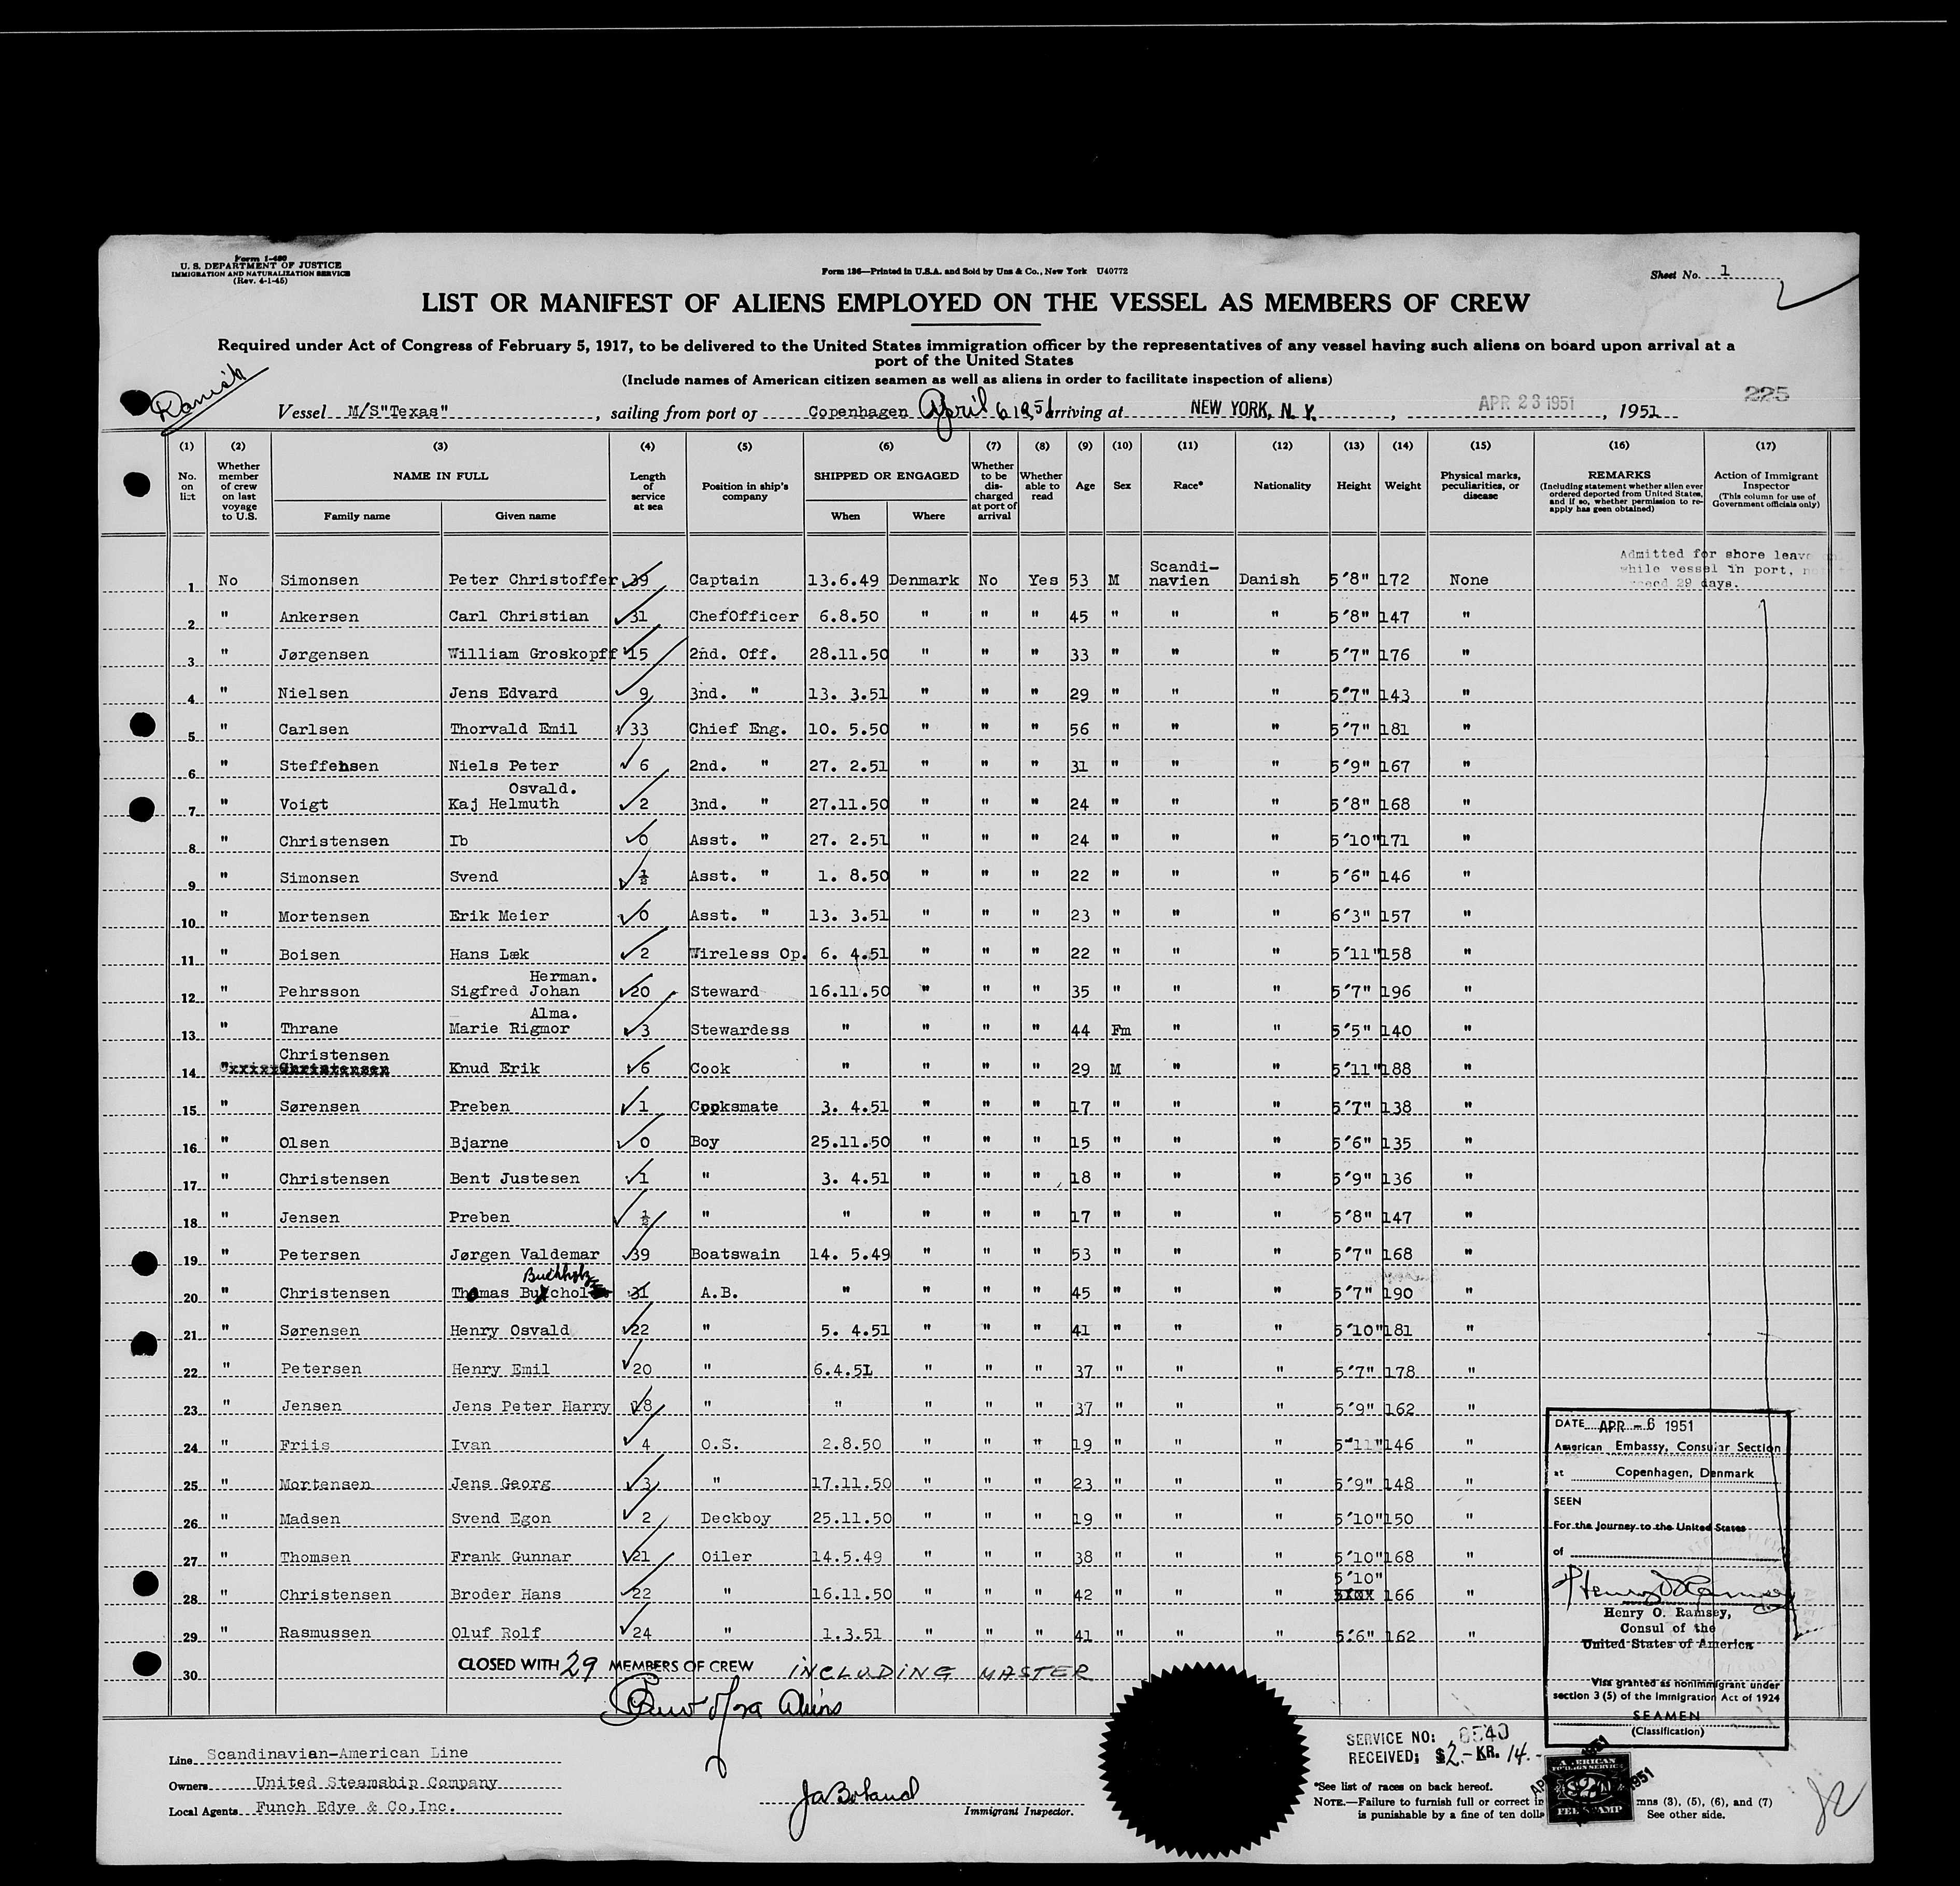 Form I-480
U. S. DEPARTMENT OF JUSTICE
IMMIGRATION AND NATURALIZATION SERVICE
(Rev. 4-1-45)
Form 136—Printed in U.S.A. and Sold by Unz & Co., New York U40772
Sheet No. 1
LIST OR MANIFEST OF ALIENS EMPLOYED ON THE VESSEL AS MEMBERS OF CREW
Required under Act of Congress of February 5, 1917, to be delivered to the United States immigration officer by the representatives of any vessel having such aliens on board upon arrival at a
port of the United States
(Include names of American citizen seamen as well as aliens in order to facilitate inspection of aliens)
Danish
225
Vessel M/S"Texas", sailing from port of Copenhagen April 6 1951 arriving at NEW YORK, N. Y., APR 23 1951, 1951
(1) (2) (3) (4) (5) (6) (7) (8) (9) (10) (11) (12) (13) (14) (15) (16) (17)
No. on list
Whether member of crew on last voyage to U.S.
NAME IN FULL
Family name Given name
Length of service at sea
Position in ship's company
SHIPPED OR ENGAGED
When Where
Whether to be discharged at port of arrival
Whether able to read
Age Sex Race* Nationality Height Weight
Physical marks, peculiarities, or disease
REMARKS
(Including statement whether alien ever ordered deported from United States, and if so, whether permission to re-apply has geen obtained)
Action of Immigrant Inspector
(This column for use of Government officials only)
Admitted for shore leave
while vessel in port,
29 days.
1 No Simonsen Peter Christoffer 39 Captain 13.6.49 Denmark No Yes 53 M Scandi-navien Danish 5'8" 172 None
2 " Ankersen Carl Christian 31 ChefOfficer 6.8.50 " " " 45 " " " 5'8" 147 "
3 " Jørgensen William Groskopff 15 2nd. Off. 28.11.50 " " " 33 " " " 5'7" 176 "
4 " Nielsen Jens Edvard 9 3nd. " 13. 3.51 " " " 29 " " " 5'7" 143 "
5 " Carlsen Thorvald Emil 33 Chief Eng. 10. 5.50 " " " 56 " " " 5'7" 181 "
6 " Steffensen Niels Peter 6 2nd. " 27. 2.51 " " " 31 " " " 5'9" 167 "
Osvald.
7 " Voigt Kaj Helmuth 2 3nd. " 27.11.50 " " " 24 " " " 5'8" 168 "
8 " Christensen Ib 0 Asst. " 27. 2.51 " " " 24 " " " 5'10" 171 "
9 " Simonsen Svend ½ Asst. " 1. 8.50 " " " 22 " " " 5'6" 146 "
10 " Mortensen Erik Meier 0 Asst. " 13. 3.51 " " " 23 " " " 6'3" 157 "
11 " Boisen Hans Læk 2 Wireless Op. 6. 4.51 " " " 22 " " " 5'11" 158 "
Herman.
12 " Pehrsson Sigfred Johan 20 Steward 16.11.50 " " " 35 " " " 5'7" 196 "
Alma.
13 " Thrane Marie Rigmor 3 Stewardess " " " " 44 Fm " " 5'5" 140 "
Christensen
14 " Christensen Knud Erik 6 Cook " " " " 29 M " " 5'11" 188 "
15 " Sørensen Preben 1 Cooksmate 3. 4.51 " " " 17 " " " 5'7" 138 "
16 " Olsen Bjarne 0 Boy 25.11.50 " " " 15 " " " 5'6" 135 "
17 " Christensen Bent Justesen 1 " 3. 4.51 " " " 18 " " " 5'9" 136 "
18 " Jensen Preben ½ " " " " " 17 " " " 5'8" 147 "
19 " Petersen Jørgen Valdemar 39 Boatswain 14. 5.49 " " " 53 " " " 5'7" 168 "
Buchholz
20 " Christensen Thomas 31 A.B. " " " " 45 " " " 5'7" 190 "
21 " Sørensen Henry Osvald 22 " 5. 4.51 " " " 41 " " " 5'10" 181 "
22 " Petersen Henry Emil 20 " 6.4.51 " " " 37 " " " 5'7" 178 "
23 " Jensen Jens Peter Harry 18 " " " " " 37 " " " 5'9" 162 "
24 " Friis Ivan 4 O.S. 2.8.50 " " " 19 " " " 5'11" 146 "
25 " Mortensen Jens Georg 3 " 17.11.50 " " " 23 " " " 5'9" 148 "
26 " Madsen Svend Egon 2 Deckboy 25.11.50 " " " 19 " " " 5'10" 150 "
27 " Thomsen Frank Gunnar 21 Oiler 14.5.49 " " " 38 " " " 5'10" 168 "
28 " Christensen Broder Hans 22 " 16.11.50 " " " 42 " " " 5'10" 166 "
29 " Rasmussen Oluf Rolf 24 " 1.3.51 " " " 41 " " " 5'6" 162 "
30 CLOSED WITH 29 MEMBERS OF CREW INCLUDING MASTER
DATE APR -6 1951
American Embassy, Consular Section
at Copenhagen, Denmark
SEEN
For the Journey to the United States
of
Henry O. Ramsey
Henry O. Ramsey,
Consul of the
United States of America
Visa granted as nonimmigrant under
section 3 (5) of the Immigration Act of 1924
SEAMEN
(Classification)
Line Scandinavian-American Line
Owners United Steamship Company
Local Agents Funch Edye & Co,Inc.
Immigrant Inspector.
SERVICE NO: 6540
RECEIVED: $2.- KR. 14.-
*See list of races on back hereof.
NOTE.—Failure to furnish full or correct in mns (3), (5), (6), and (7)
is punishable by a fine of ten doll See other side.
AMERICAN
FOREIGN SERVICE
$2
FEE STAMP